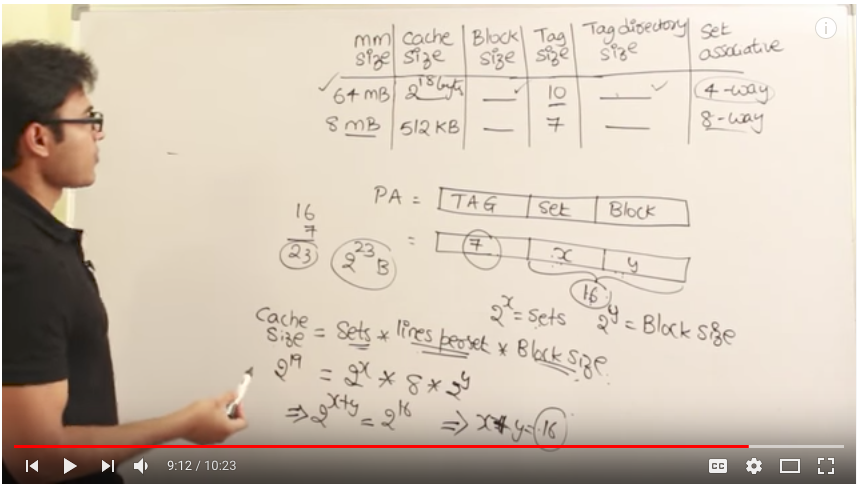 mm size | Cache size | Block size | Tag size | Tag directory size | Set associative
✓ 64 MB | 2^18 byte | — ✓ | 10 | — ✓ | 4-way
8 MB | 512 KB | — | 7 | — | 8-way
PA = TAG | Set | Block
= 7 | x | y
16
16
7
23
2^23 B
2^x = sets 2^y = Block size
Cache size = Sets * lines per set * Block size
2^19 = 2^x * 8 * 2^y
⇒ 2^x+y = 2^16 ⇒ x+y = 16
9:12 / 10:23
CC